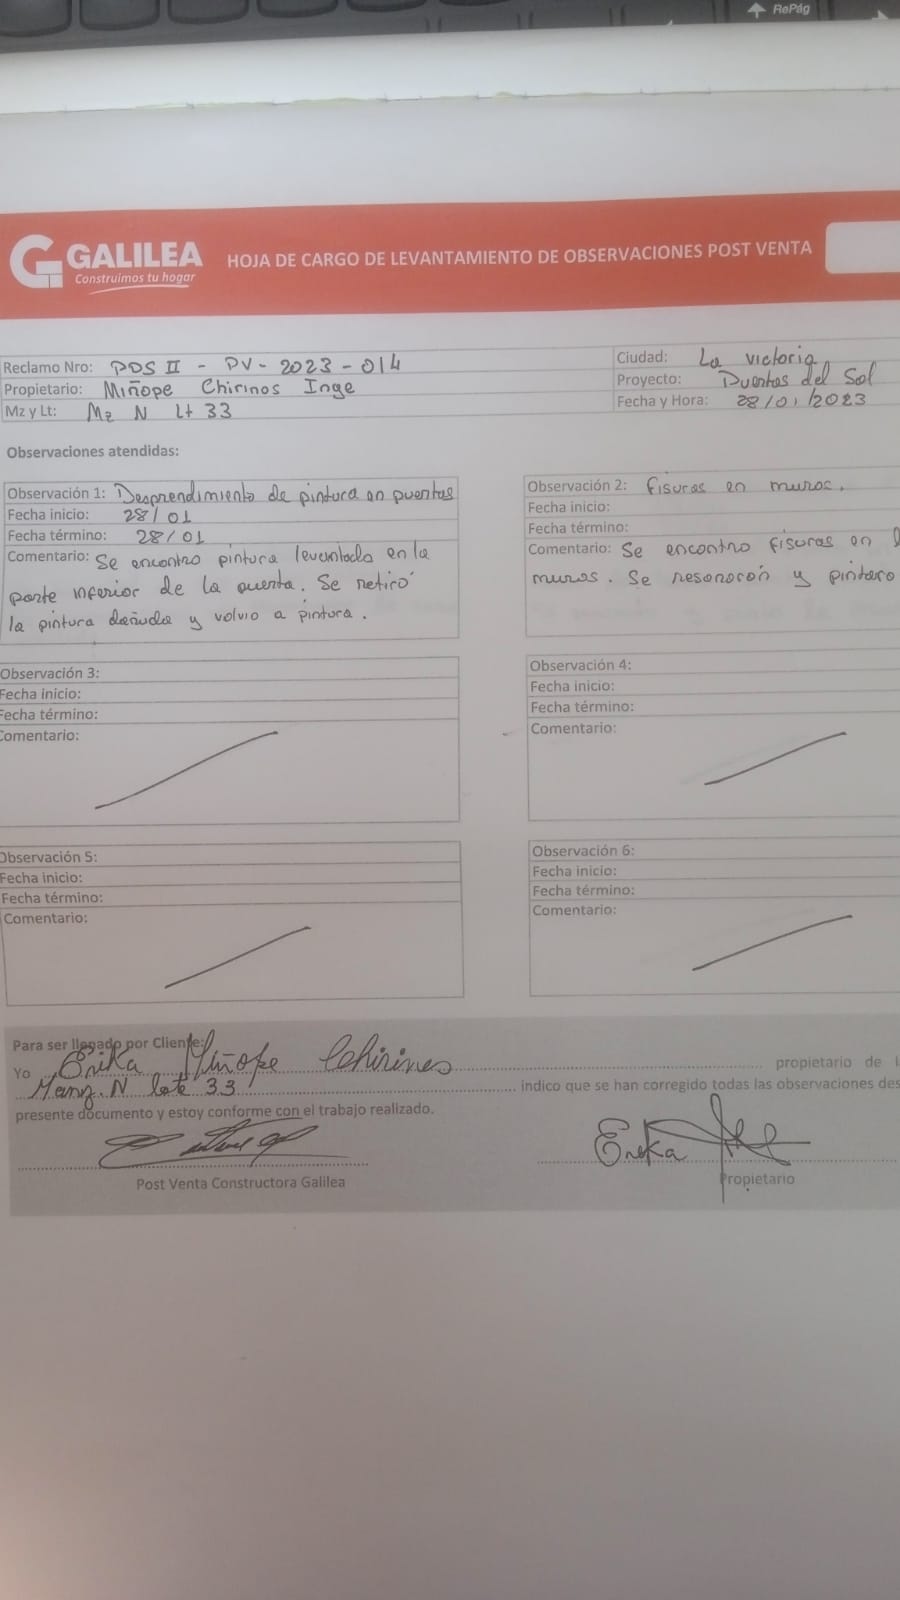 RePág
GALILEA
Construimos tu hogar
HOJA DE CARGO DE LEVANTAMIENTO DE OBSERVACIONES POST VENTA
Reclamo Nro: PDS II - PV - 2023 - 014
Propietario: Miñope Chirinos Inge
Mz y Lt: Mz N Lt 33
Ciudad: La victoria
Proyecto: Puertas del Sol
Fecha y Hora: 28/01/2023
Observaciones atendidas:
Observación 1: Desprendimiento de pintura en puertas
Fecha inicio: 28/01
Fecha término: 28/01
Comentario: Se encontro pintura levantada en la
parte inferior de la puerta. Se retiró
la pintura dañada y volvio a pintura.
Observación 2: fisuras en muros.
Fecha inicio:
Fecha término:
Comentario: Se encontro fisuras en
muros. Se resanaron y pintaro
Observación 3:
Fecha inicio:
Fecha término:
Comentario:
Observación 4:
Fecha inicio:
Fecha término:
Comentario:
Observación 5:
Fecha inicio:
Fecha término:
Comentario:
Observación 6:
Fecha inicio:
Fecha término:
Comentario:
Para ser llenado por Cliente:
Yo Erika Miñope Chirinos propietario de
Manz. N lote 33 indico que se han corregido todas las observaciones des
presente documento y estoy conforme con el trabajo realizado.
Erika
Post Venta Constructora Galilea
Propietario